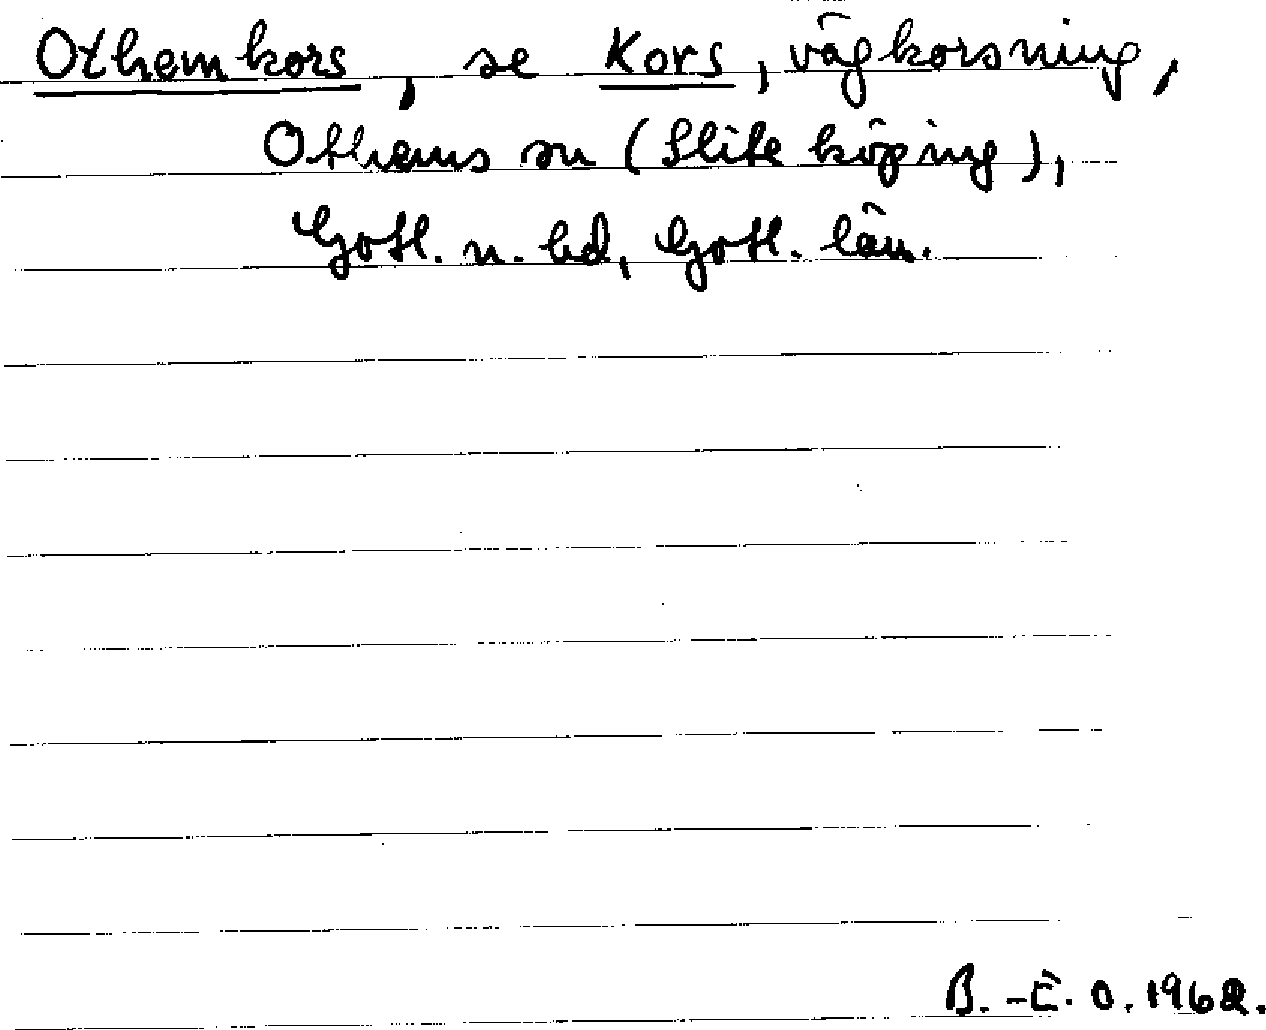 Othemkors, se Kors, vägkorsning,
Othems sn (Slite köping),
Gotl. n. hd, Gotl. län.
B.-E. O. 1962.